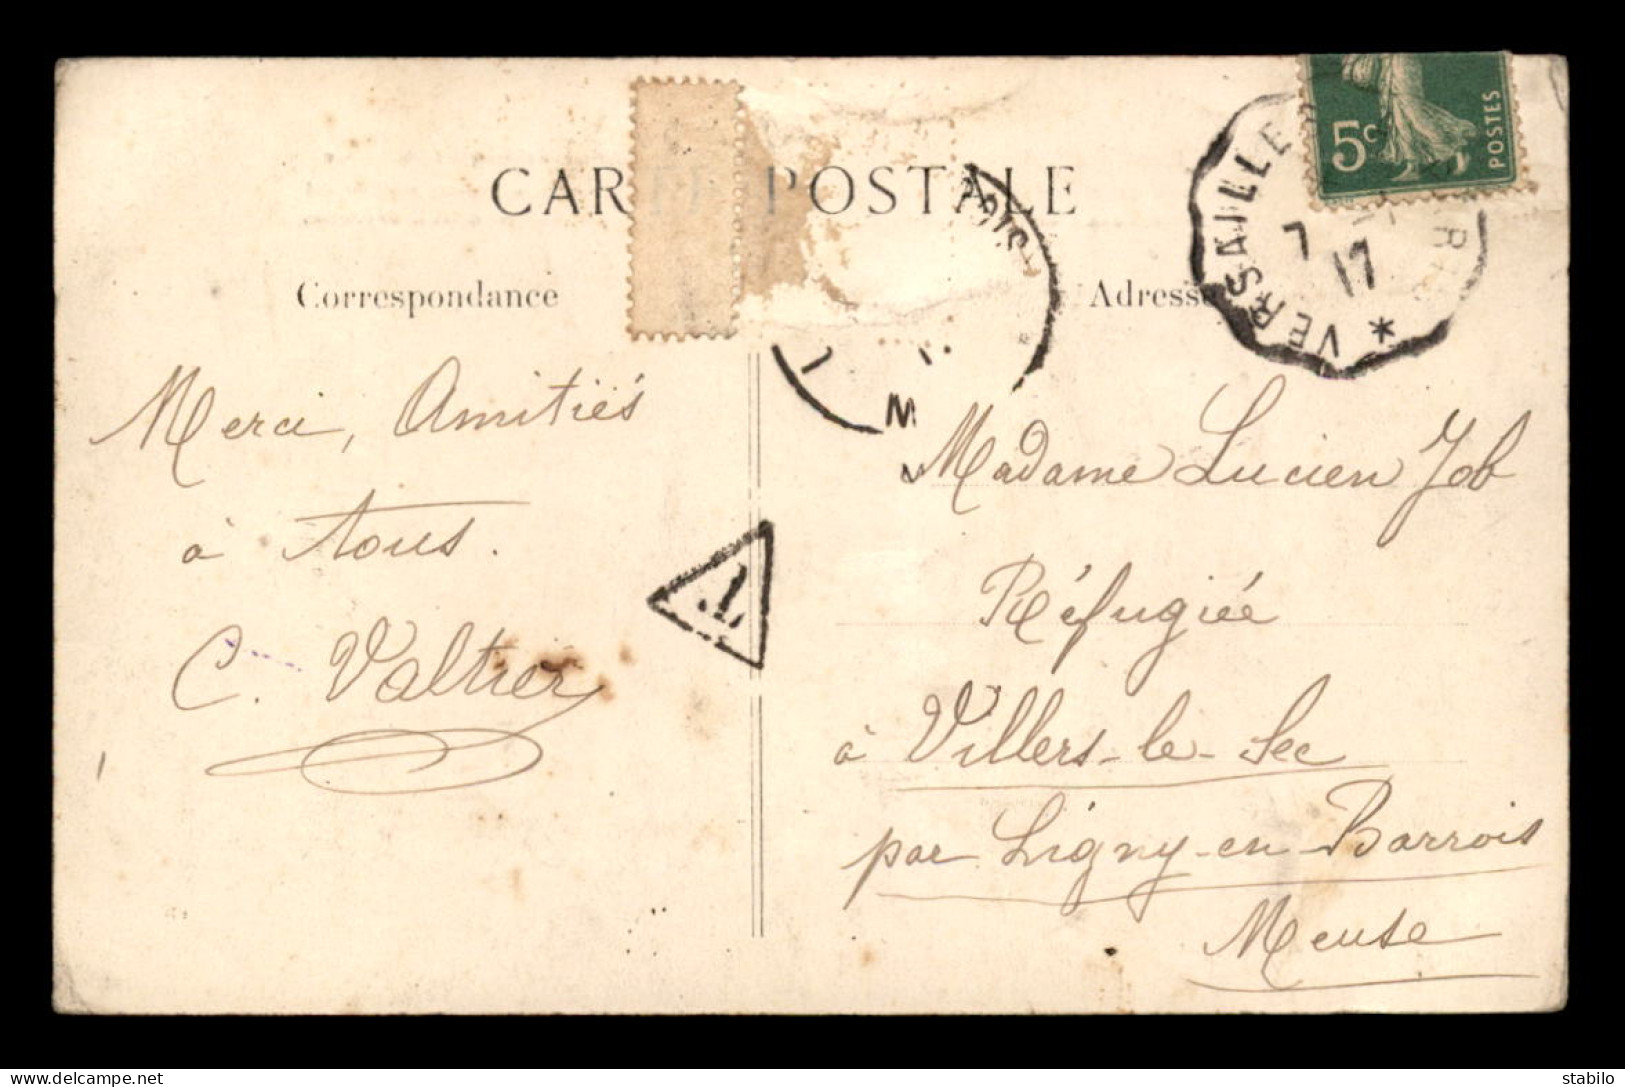 CARTE POSTALE
Correspondance
Adresse
5c
POSTES
VERSAILLE
7
17
Merci, Amitiés
à tous.
C. Valtier
T
Madame Lucien Job
Réfugiée
à Villers-le-Sec
par Ligny-en-Barrois
Meuse
delcampe.net
stabilo